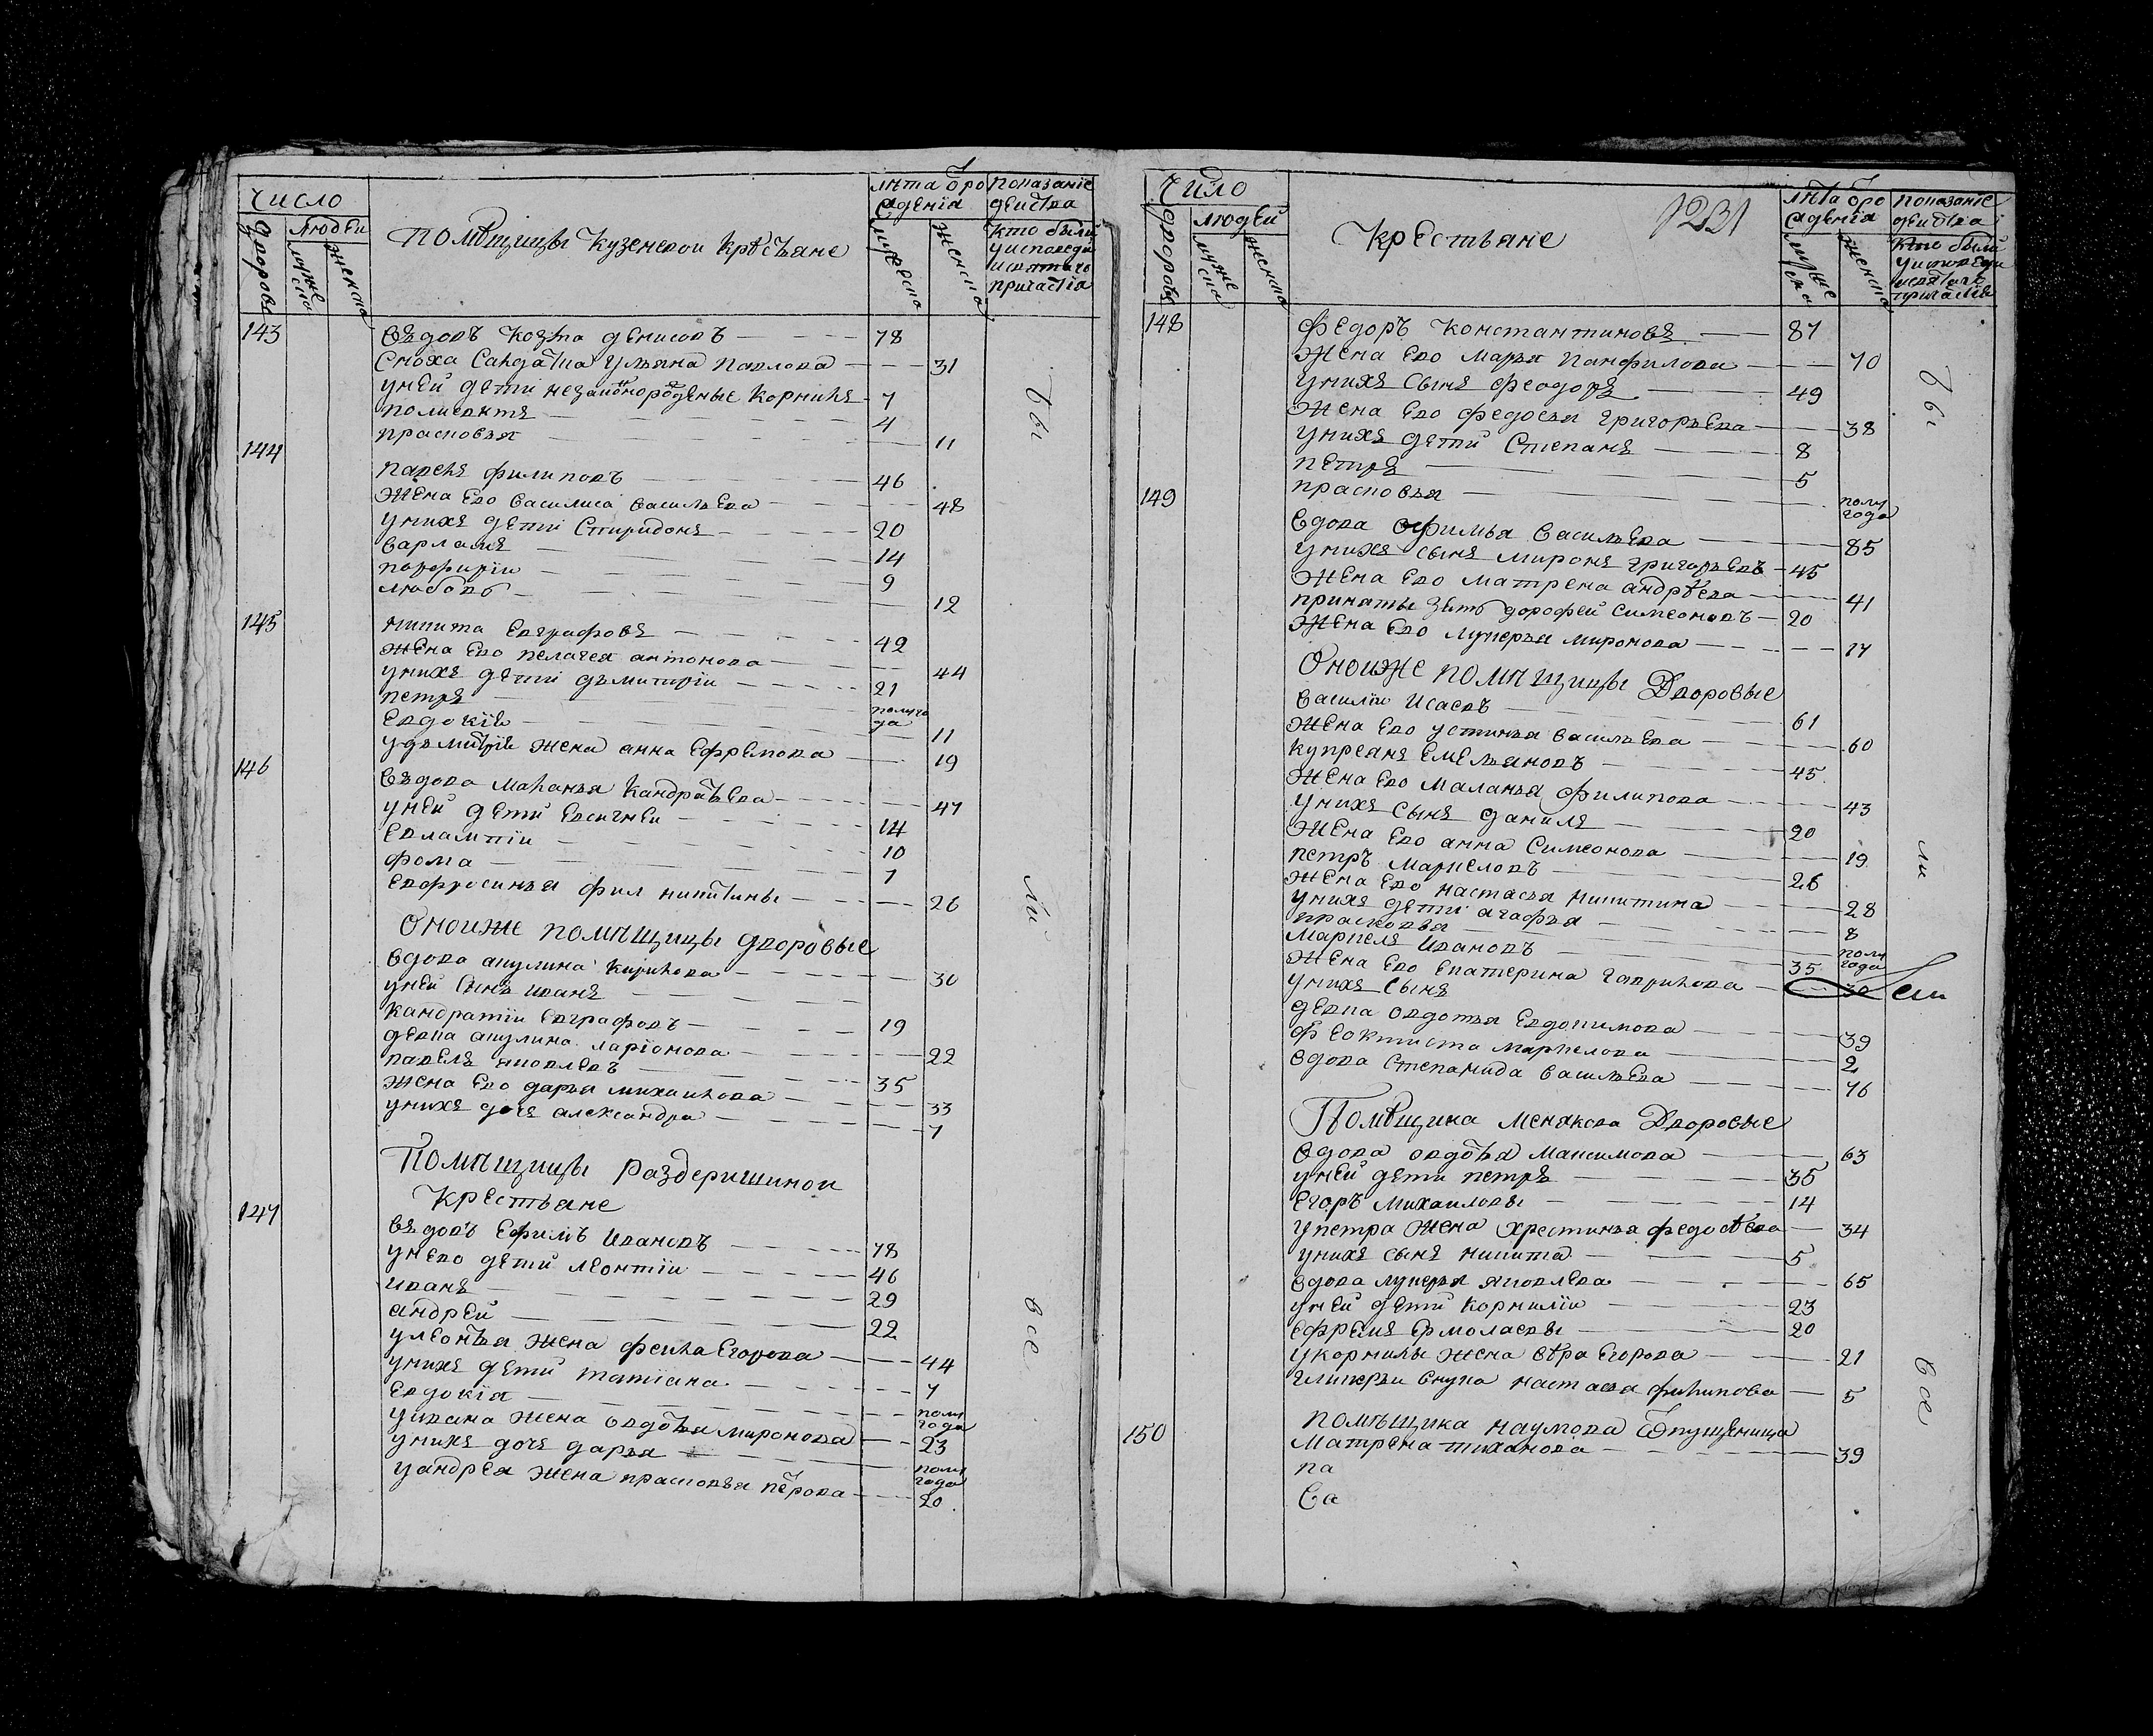 Число
дворовъ
людеи
мужеска
женска
помѣщицы Кузеневои крѣстьяне
лѣта отро
жденія
мужеска
женска
показаніе
деиства
кто были
уисповеди
исвятаго
причастія
143
Въдовъ Козма денисовъ 78
Сноха Салдатка Ульяна Павлова 31
унеи дети незаконнорожденые Корнилъ 7
поликантъ 4
прасковья 11
144
павелъ филиповъ 46
жена Ево василиса васильева 48
унихъ дети Спиридонъ 20
варламъ 14
порфирiи 9
любовь 12
145
никита Евграфовъ 42
жена Ево пелагея антонова 44
унихъ дети дьмитрiи 21
петръ полуго
да
Евдокiя 11
удьмитрiя жена анна Ефремова 19
146
Въдова маланья Кандратьева 47
унеи дети Евсигнеи 14
Евлампiи 10
фома 7
Евфросинья фил никитины 26
Оноиже помѣщицы дворовые
вдова акулина кирилова 30
унеи Сынъ иванъ
Кандратiи Евграфовъ 19
девка акулина ларiонова 22
павелъ яковлевъ 35
жена Ево дарья михаилова 33
унихъ дочь александра 7
Помѣщицы Раздеришинои
Крестьяне
147
въдовъ Ефимъ Ивановъ 78
унево дети леонтiи 46
иванъ 29
андреи 22
улеонтья жена фекла Егорова 44
унихъ дети татiана 7
Евдокiя полу
года
уивана жена овдотья миронова 23
унихъ дочь дарья полу
года
уандрея жена прасковья петрова 20
бы
ли
все
Число
дворовъ
людеи
мужеска
женска
Крестьяне
1231
лѣта отро
жденiя
мужеска
женска
показанiе
деиства
кто были
уисповеди
исвятаго
причастiя
148
федоръ константиновъ 87
жена Ево марья панфилова 70
унихъ сынъ феодоръ 49
жена Ево федосья григорьева 38
унихъ дети Степанъ 8
петръ 5
прасковья полу
года
149
вдова офимья васильева 85
унихъ сынъ миронъ григорьевъ 45
жена Ево матрена андрѣева 41
принаты зять дорофеи симеоновъ 20
жена Ево лукерья миронова 17
Оноиже помѣщицы Дворовые
василiи исаевъ 61
жена Ево устинья васильева 60
купреанъ емельяновъ 45
жена Ево маланья филипова 43
унихъ сынъ данилъ 20
жена Ево анна Симеонова 19
петръ маркеловъ 26
жена Ево настасья никитина 28
унихъ дети агафья 8
прасковья полу
года
маркелъ ивановъ 35
жена Ево екатерина гаврилова 30
унихъ сынъ
девка овдотья Евдокимова 39
феоктиста маркелова 2
вдова Степанида васильева 76
Помѣщика менякова Дворовые
вдова овдотья максимова 63
унеи дети петръ 35
егоръ михаиловы 14
упетра жена христинья федосѣева 34
унихъ сынъ никита 5
вдова лукерья яковлева 65
унеи дети корнилiи 23
ефремъ ермолаевы 20
укорнилы жена вѣра Егорова 21
гликерьи внука настасья филипова 5
150
помѣщика наумова отпущеница
матрена тиханова 39
па
Са
бы
ли
все